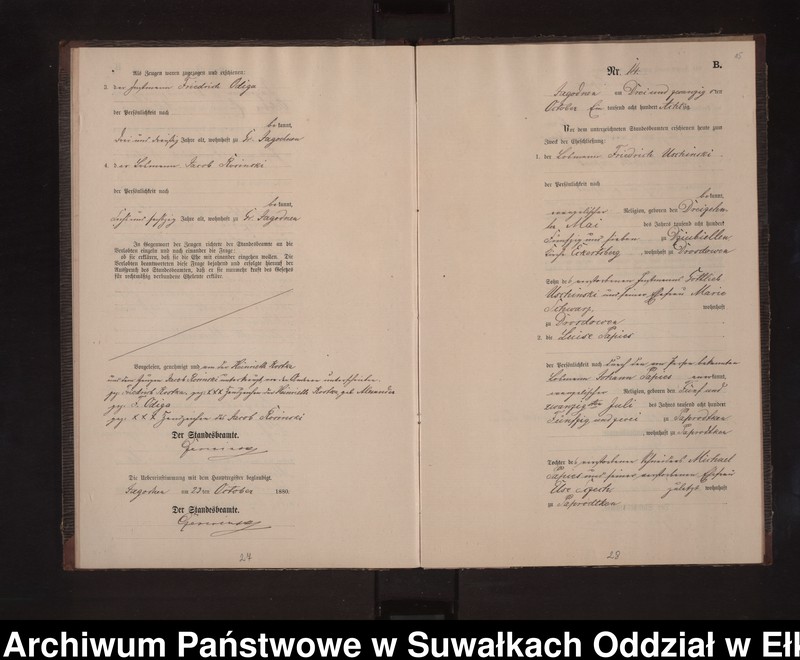 Als Zeugen waren zugezogen und erschienen:
3. der Instmann Friedrich Odiga
der Persönlichkeit nach
bekannt,
drei und dreißig Jahre alt, wohnhaft zu Gr. Jagodnen
4. der Losmann Jacob Rosinski
der Persönlichkeit nach
bekannt,
sechs und sechzig Jahre alt, wohnhaft zu Gr. Jagodnen
In Gegenwart der Zeugen richtete der Standesbeamte an die
Verlobten einzeln und nach einander die Frage:
ob sie erklären, daß sie die Ehe mit einander eingehen wollen. Die
Verlobten beantworteten diese Frage bejahend und erfolgte hierauf der
Ausspruch des Standesbeamten, daß er sie nunmehr kraft des Gesetzes
für rechtmäßig verbundene Eheleute erkläre.
Vorgelesen, genehmigt und von der Henriette Kostka
und dem Zeugen Jacob Rosinski unterkreuzt von den Anderen unterschrieben
gez. Kostka. gez. XXX Handzeichen der Henriette Kostka geb.
gez. Odiga
gez. XXX Handzeichen des Jacob Rosinski
Der Standesbeamte.
Die Uebereinstimmung mit dem Hauptregister beglaubigt.
Jagodnen am 23 ten October 1880.
Der Standesbeamte.
24
B.
Nr. 14.
Jagodnen am Drei und zwanzig ten
October Ein tausend acht hundert Achtzig
Vor dem unterzeichneten Standesbeamten erschienen heute zum
Zweck der Eheschließung:
1. der Losmann Friedrich Uschinski
der Persönlichkeit nach
bekannt,
evangelischer Religion, geboren den Dreizehn
ten Mai des Jahres tausend acht hundert
Fünfzig und sieben zu Dziubiellen
Kreis, wohnhaft zu Drosdowen
Sohn des verstorbenen Instmanns Gottlieb
Uschinski und seiner Ehefrau Marie
Schwarz wohnhaft
zu Drosdowen
2. die Luise Papies
der Persönlichkeit nach durch den von Person bekannten
Losmann Johann Papies anerkannt,
evangelischer Religion, geboren den Fünf und
zwanzigsten Juli des Jahres tausend acht hundert
Fünfzig und zwei zu Paprodtken
, wohnhaft zu Paprodtken
Tochter des verstorbenen Schneiders Michael
Papies und seiner verstorbenen Ehefrau
zuletzt wohnhaft
zu Paprodtken
28
Archiwum Państwowe w Suwałkach Oddział w Ełk